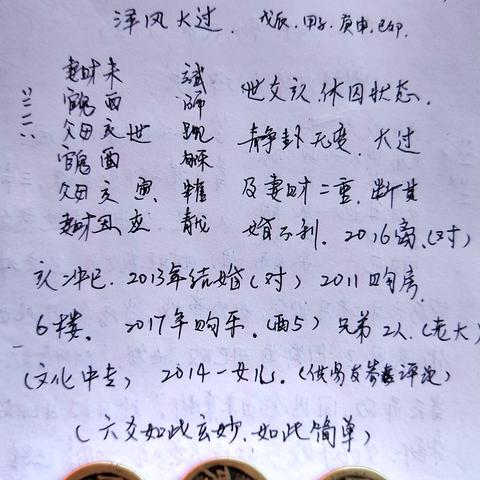 泽风大过. 戊辰,甲子,庚申,己卯.
妻财未 玄武 世爻亥.休囚状态.
官鬼酉 白虎
父母亥世 静卦无变.大过
官鬼酉 勾陈
父母亥 寅 朱雀 及妻财二重.断其
妻财丑 青龙 婚不利. 2016离.(对)
亥冲巳. 2013年结婚(对) 2011购房.
6楼. 2017年购车.(酉5) 兄弟2人.(老大)
(文化中专) 2014一女儿.(供易友参考评说)
(六爻如此玄妙.如此简单)